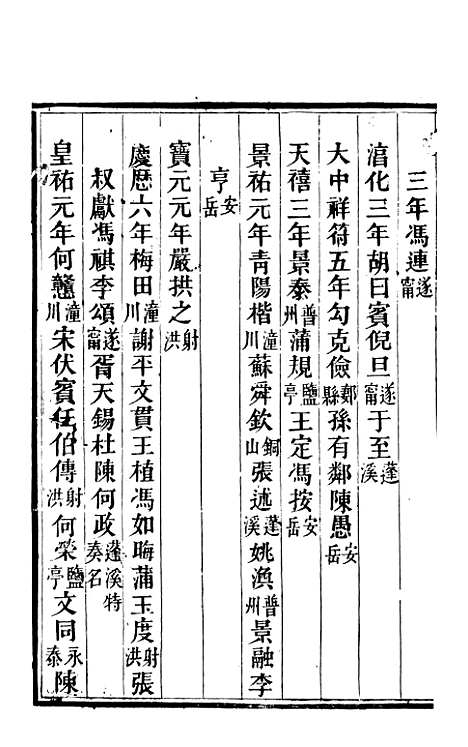 三年馮連遂寧
淯化三年胡曰賓倪旦遂寧于至蓬溪
大中祥符五年勾克儉郪縣孫有鄰陳愚安岳
天禧三年景泰普州蒲規鹽亭王定馮按安岳
景祐元年靑陽楷潼川蘇舜欽銅山張述蓬溪姚渙普州景融李
亨安岳
寶元元年嚴拱之射洪
慶曆六年梅田潼川謝平文貫王植馮如晦蒲玉度射洪張
叔獻馮祺李頌遂寧胥天錫杜陳何政蓬溪特奏名
皇祐元年何戇潼川宋伏賓任伯傳射洪何榮鹽亭文同永泰陳